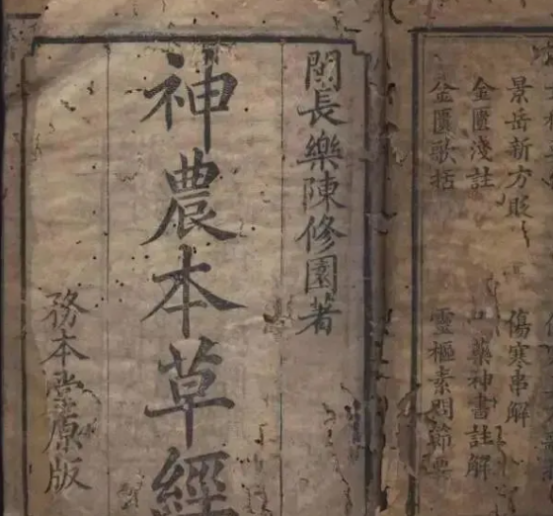 景岳新方貶
傷寒串解
金匱淺註
藥神書註解
金匱歌括
靈樞素問節要
閩長樂陳修園著
神農本草經
務本堂原版